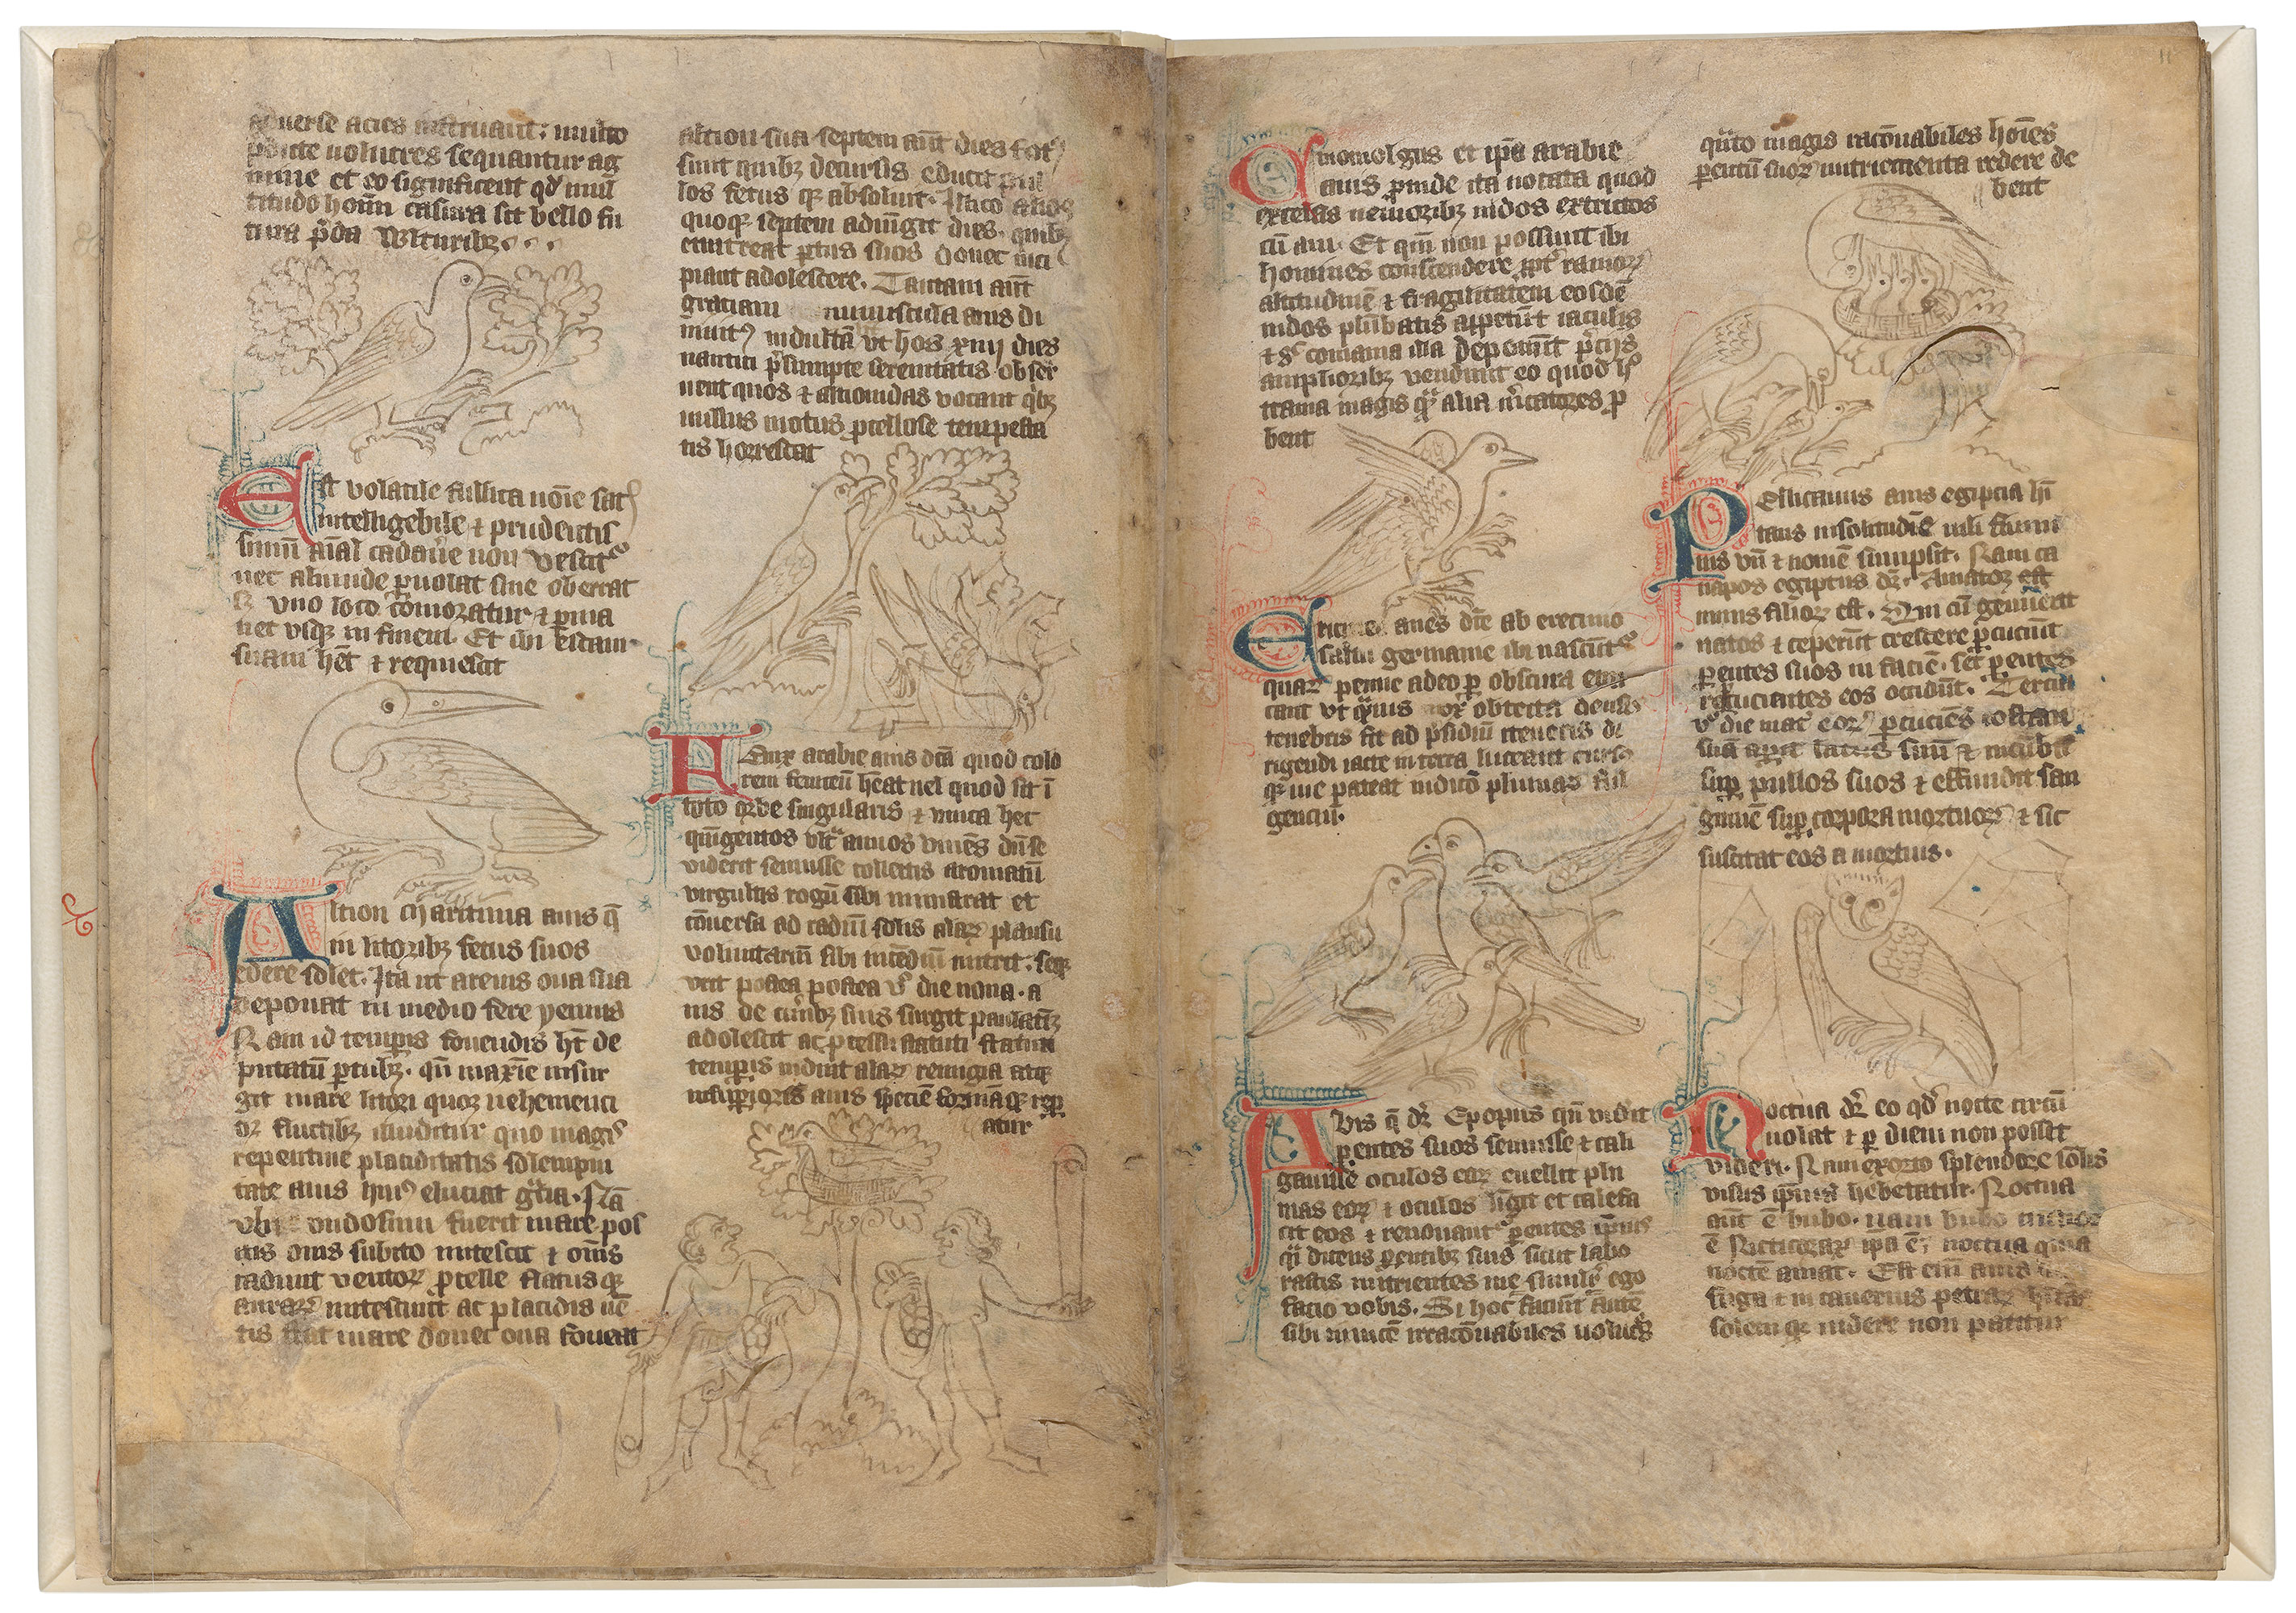 aduerse acies instruant: multo
uolucres sequantur ag
mine et eo significent qd' mul
titudo hoīm casura sit bello fu
tura p̄da vulturibꝫ.
Est volatile fullica noīe satꝭ
intelligebile ⁊ prudentis
simū aīal cadauͤe non vescitᷣ
nec aliunde ꝑuolat siue oberrat
sꝫ vno loco cōmoratur ⁊ ꝑma
net vsqꝫ in finem. Et ibi escam
suam hēt ⁊ requiescit
Altion maritima auis q̄
in litoribꝫ fetus suos
edere solet. Ita ut arenis oua sua
deponat in medio fere yemis
Nam id temꝑis fouendis hēt de
putatū ꝑtubꝫ. qn̄ maxīe insur
git mare litori quoꝫ uehementi
or fluctibꝫ iliditur quo magꝭ
repentine placiditatis solempni
tate auis huiꝰ eluciat gᷓtia. Nā
vbi undosum fuerit mare pos
itis ouis subito mitescit ⁊ om̄s
cadunt ventoꝝ ꝓcelle flatusqꝫ
auraꝝ mitescūt ac placidis uē
tis stat mare donec oua foueat
altion sua septem aūt dies fotꝰ
sunt quibꝫ decursis educit pul
los fetus qꝫ absoluit. Ilico alios
quoqꝫ septem adiūgit dies. quibꝫ
enutreat ꝑtus suos donec inci
piant adolescere. Tantam aūt
gratiam minuscula auis di
uinitꝰ indultā vt hos xiiij dies
nautici p̄sumpte serenitatis obser
uent quos ⁊ altionidas vocant qͥbꝫ
nullus motus ꝓcellose tempesta
tis horrescat
Fenix arabie auis dc̄a quod colo
rem feniceū hēat uel quod sit ī
toto orbe singularis ⁊ vnica hec
quīgentos vltᷓ annos viuēs dū se
viderit senuisse collectis aromatū
virgultis rogū sibi minarat et
cōuersa ad radiū solis alaꝝ plausu
voluntariū sibi incēdiū nutrit. seqꝫ
vrit postea postea vͦ die nona. a
uis de cinͤibꝫ suis surgit paulatī
adolescit ac ꝓcessu statuti statim
temꝑis induit alaꝝ remigia atqꝫ
insuꝑioris auis specīe formā qꝫ reꝑ
atur
Cinomolgus et ip̄a arabie
auis ꝓinde ita uocata quod
excelsis nemoribꝫ nidos extructos
cū aui. Et qm̄ non possunt ibi
homines conscendere ꝓpͭ ramoꝝ
altitudinē ⁊ fragilitatem eosdē
nidos plūbatis appetūt iaculis
⁊ sͥ cōnama illa deponūt p̄cijs
amplioribꝫ vendunt eo quod hͦ
tama magis qᷓ alia mͤcatores ꝓ
bent
Ericinee aues dc̄e ab ericinio
saltu germanie ibi nascūtᷣ
quaꝝ penne adeo ꝑ obscura emi
cant vt qᷓuis nox obtecta densis
tenebris sit ad p̄sidiū itineris di
rigendi iacte in terra luceant cursͦ
qꝫ uie pateat indicō plumaꝝ ful
gentiū.
Avis q̄ dr̄ Epopus qn̄ viderit
ꝑentes suos senuisse ⁊ cali
gauisse oculos eaꝝ euellit plu
mas eoꝝ ⁊ oculos līgit et calefa
cit eos ⁊ renouantᷣ ꝑentes ip̄ius
qͣ dicens ꝑentibꝫ suis sicut labo
rastis nutrientes me similrͥ ego
facio vobis. Si hoc faciūt autē
sibi inuicē irracōnabiles uolucͤs
qͣnto magis racōnabiles hoīes
ꝑentū suoꝝ nutrimenta redere de
bent
Pellicanus auis egiptia hī
tans in solitudīe nili flumi
nis vn̄ ⁊ nomē sumpsit. Nam ca
napos egiptus dr̄. Amator est
nimis filioꝝ est. Qui cū genuerit
natos ⁊ ceperūt crescere ꝑcuciūt
ꝑentes suos in faciē. set ꝑentes
reꝑcucientes eos occidūt. Tercia
vͦ die matͤ eoꝝ ꝑcuciēs costam
suā aꝑit latus suū ⁊ incūbit
suꝑ pullos suos ⁊ effundit san
guinē suꝑ corpora mortuoꝝ ⁊ sic
suscitat eos a mortuis.
Noctua dr̄ eo qd' nocte circū
uolat ⁊ ꝑ diem non posset
videri. Nam exorto splendore solis
visus ip̄ius hebetatur. Noctua
aūt ē bubo. nam bubo
ē Nicticorax ip̄a ē noctua quia
noctē amat. Est eīm auis
fuga ⁊ in cauernis petraꝝ hītās
solem qꝫ uidere non patitur
11